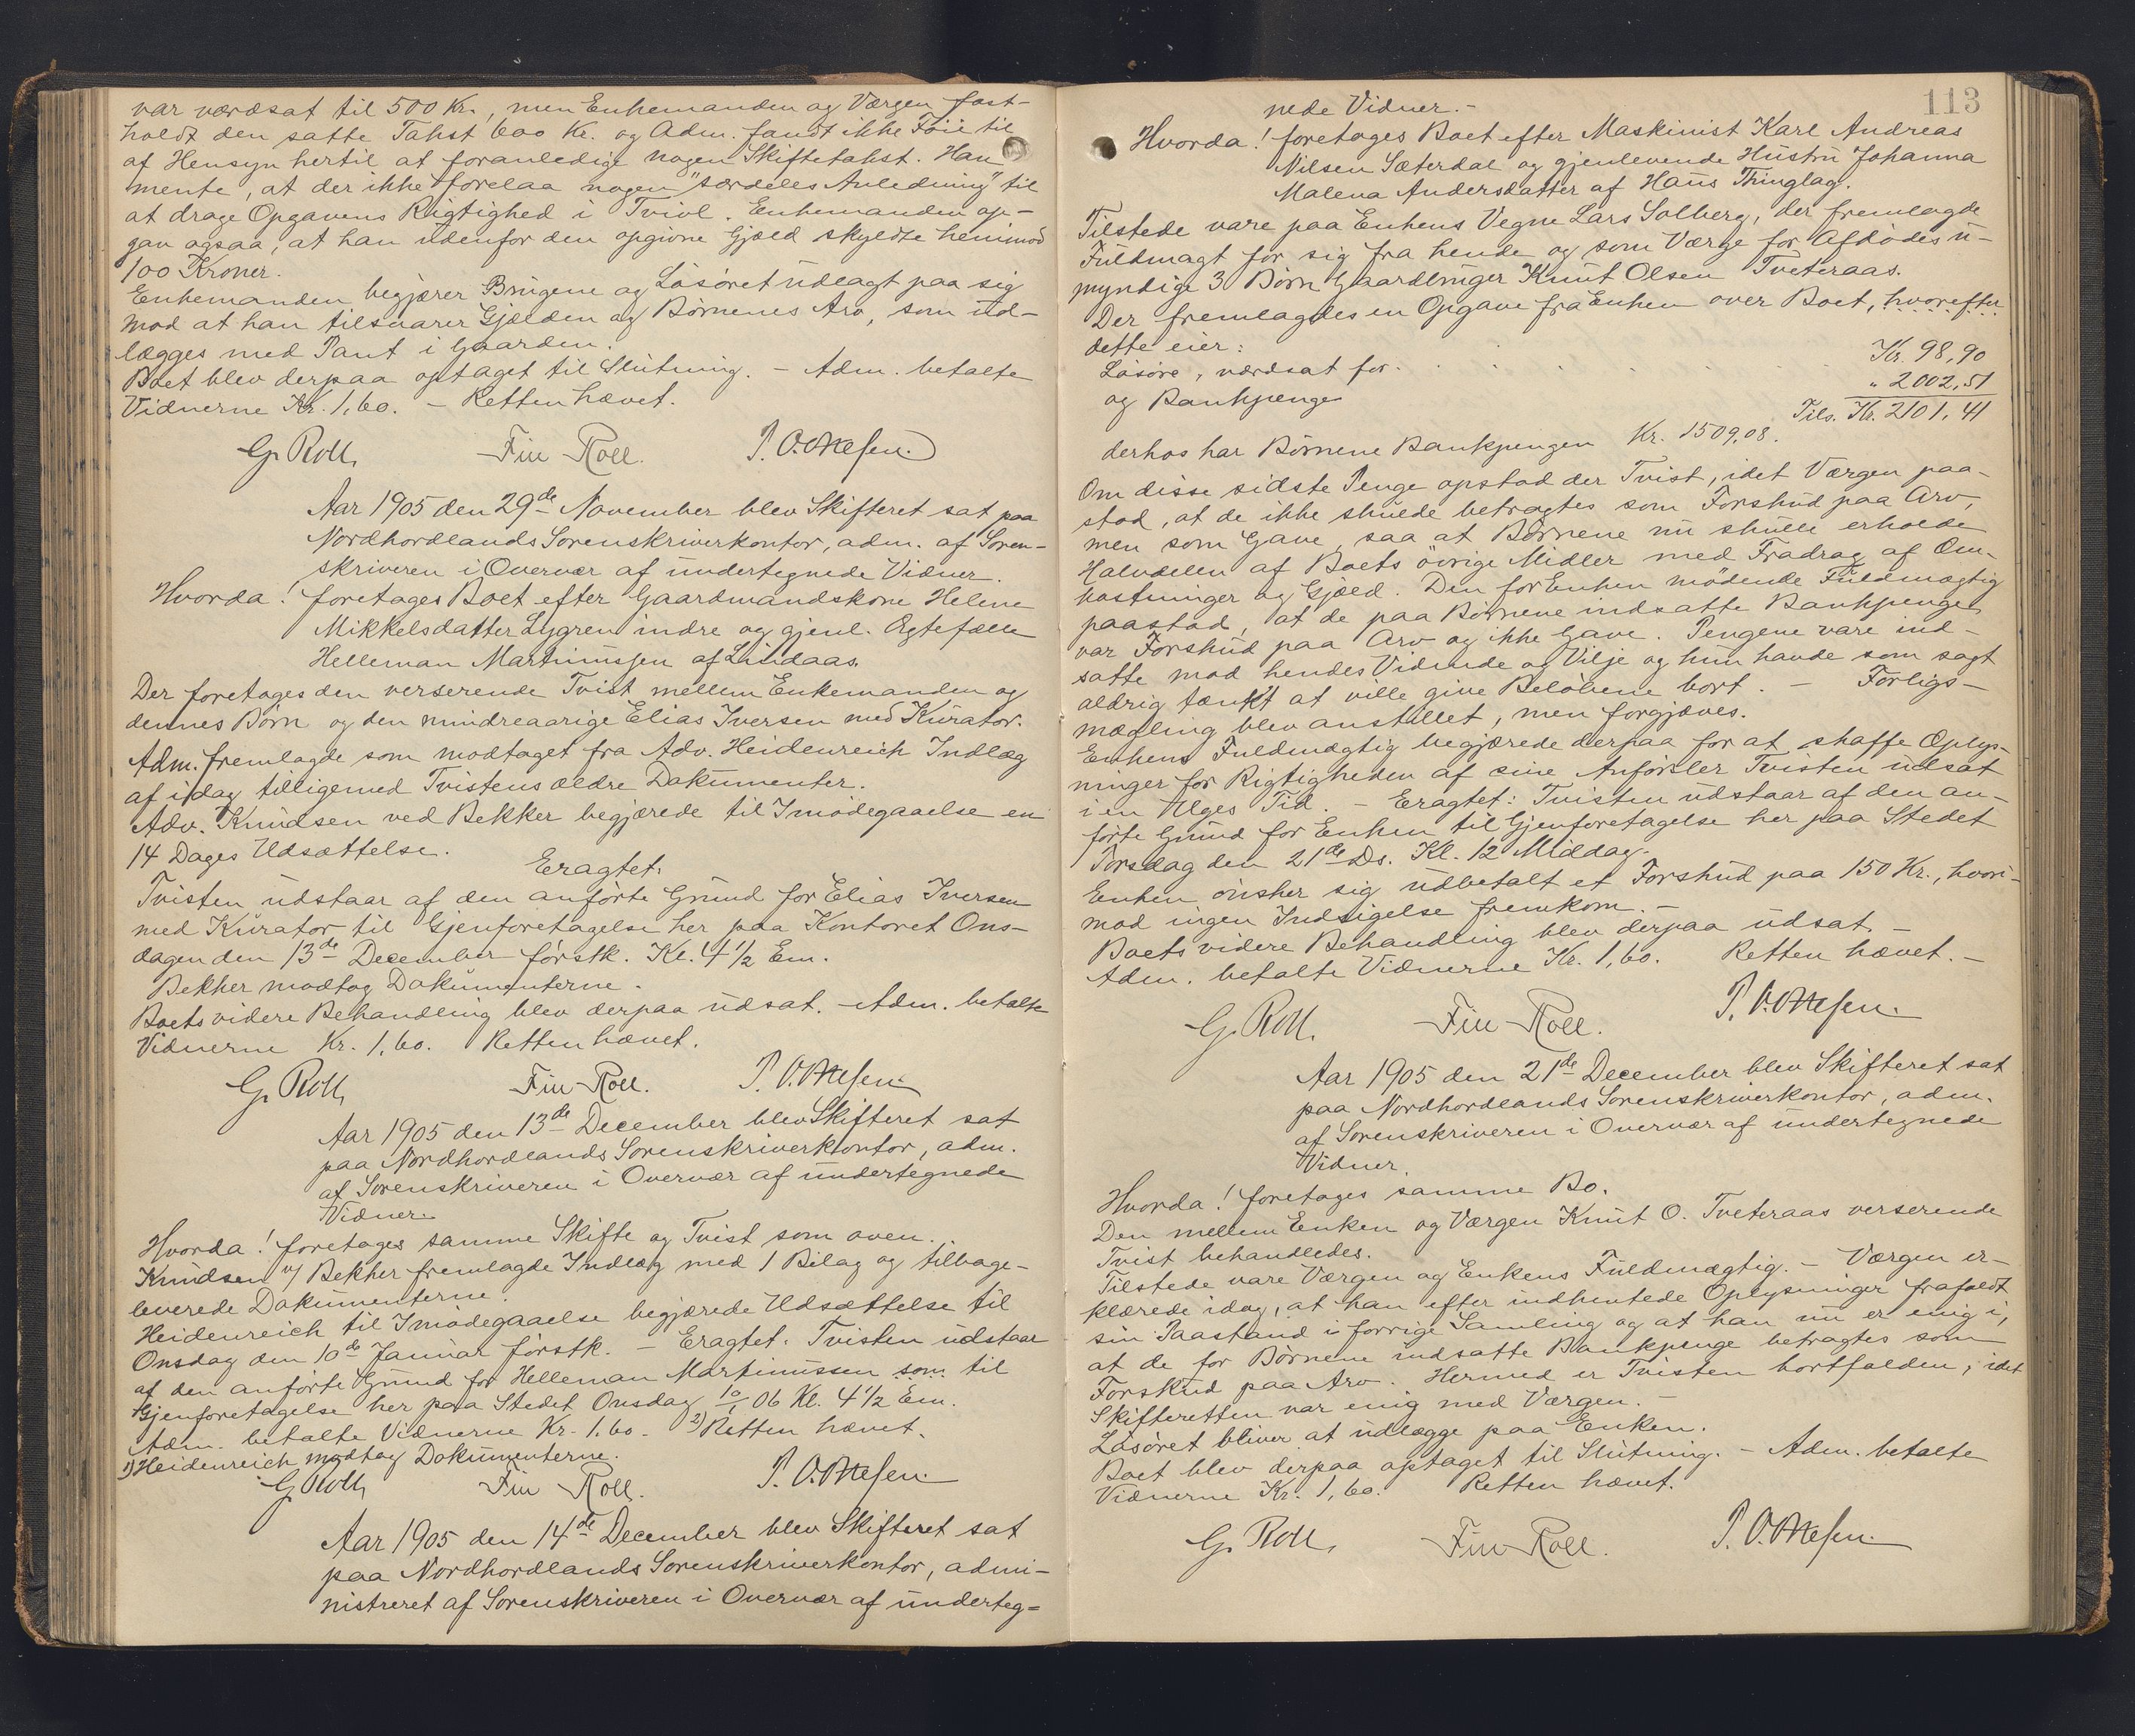 var værdsat til 500 Kr., men Enkemanden og Værgen fast-
holdt den satte Takst 600 Kr. og Adm. fandt ikke Föie til
af Hensyn hertil at foranledige nogen Skiftetakst. Han
mente, at der ikke forelaa nogen "særdeles Anledning" til
at drage Opgavens Rigtighed i Tvivl. Enkemanden op-
gav ogsaa, at han udenfor den opgivne Gjæld skyldte henimod
100 Kroner.
Enkemanden begjærer Brugene og Lösöret udlagt paa sig
mod at han tilsvarer Gjælden og Börnenes Arv, som ud-
lægges med Pant i Gaarden.
Boet blev derpaa optaget til Slutning. - Adm. betalte
Vidnerne Kr. 1,60. - Retten hævet.
G. Roll, Finn Roll. P. O. Mæsen.
Aar 1905 den 29de November blev Skifteret sat paa
Nordhordlands Sorenskriverkontor, adm. af Soren-
skriveren i Overvær af undertegnede Vidner.
Hvorda! foretages Boet efter Gaardmandskone Helene
Mikkelsdatter Lygren indre og gjenl. Egtefælle
Helleman Martinussen af Lindaas.
Der foretages den verserende Tvist mellem Enkemanden og
dennes Börn og den mindreaarige Elias Iversen med Kurator.
Adm. fremlagde som modtaget fra Adv. Heidenreich Indlæg
af idag tilligemed Tvistens ældre Dokumenter.
Adv. Knudsen ved Bekker begjærede til Imödegaaelse en
14 Dages Udsættelse.
Eragtet:
Tvisten udstaar af den anförte Grund for Elias Iversen
med Kurator til Gjenforetagelse her paa Kontoret Ons-
dagen den 13de December förstk. Kl. 4 1/2 Em.
Bekker modtog Dokumenterne.
Boets videre Behandling blev derpaa udsat. - Adm. betalte
Vidnerne Kr. 1,60. Retten hævet.
G. Roll, Finn Roll. P. O. Mæsen.
Aar 1905 den 13de December blev Skifteret sat
paa Nordhordlands Sorenskriverkontor, adm.
af Sorenskriveren i Overvær af undertegnede
Vidner.
Hvorda! foretages samme Skifte og Tvist som oven.
Knudsen v/ Bekker fremlagde Indlæg med 1 Bilag og tilbage-
leverede Dokumenterne.
Heidenreich til Imödegaaelse begjærede Udsættelse til
Onsdag den 10de Januar förstk. - Eragtet: Tvisten udstaar
af den anförte Grund for Helleman Martinussen som til
Gjenforetagelse her paa Stedet Onsdag 10/1 06 Kl. 4 1/2 Em.
Adm. betalte Vidnerne Kr. 1.60. 2) Retten hævet.
1) Heidenreich modtog Dokumenterne.
G. Roll, Finn Roll. P. O. Mæsen.
Aar 1905 den 14de December blev Skifteret sat
paa Nordhordlands Sorenskriverkontor, admi-
nistreret af Sorenskriveren i Overvær af underteg=
113
nede Vidner. -
Hvorda! foretages Boet efter Maskinist Karl Andreas
Nilsen Sæterdal og gjenlevende Hustru Johanna
Malena Andersdatter af Haus Thinglag.
Tilstede vare paa Enkens Vegne Lars Solberg, der fremlagde
Fuldmagt for sig fra hende og som Værge for Afdödes u-
myndige 3 Börn Gaardbruger Knut Olsen Tveteraas.
Der fremlagdes en Opgave fra Enken over Boet, hvorefter
dette eier:
Lösöre, værdsat for. Kr. 98,90
og Bankpenge " 2002,51
Tils. Kr. 2101,41
derhos har Börnene Bankpenger Kr. 1509,08.
Om disse sidste Penge opstod der Tvist, idet Værgen paa-
stod, at de ikke skulde betragtes som Forskud paa Arv,
men som Gave, saa at Börnene nu skulle erholde
Halvdelen af Boets övrige Midler med Fradrag af Om-
kostninger og Gjæld. Den for Enken mödende Fuldmægtig
paastod, at de paa Börnene indsatte Bankpenger
var Forskud paa Arv og ikke Gave. Pengene vare ind-
satte mod hendes Vidende og Vilje og hun havde som sagt
aldrig tænkt at ville give Belöbene bort. - Forligs-
mægling blev anstillet, men forgjæves.
Enkens Fuldmægtig begjærede derpaa for at skaffe Oplys-
ninger for Rigtigheden af sine Anförsler Tvisten udsat
i en Uges Tid. - Eragtet: Tvisten udstaar af den an-
förte Grund for Enken til Gjenforetagelse her paa Stedet
Torsdag den 21de Ds. Kl. 12 Middag.
Enken önsker sig udbetalt et Forskud paa 150 Kr., hvori-
mod ingen Indsigelse fremkom. -
Boets videre Behandling blev derpaa udsat. -
Adm. betalte Vidnerne Kr. 1,60. Retten hævet. -
G. Roll, Finn Roll. P. O. Mæsen.
Aar 1905 den 21de December blev Skifteret sat
paa Nordhordlands Sorenskriverkontor, adm.
af Sorenskriveren i Overvær af undertegnede
Vidner.
Hvorda! foretages samme Bo.
Den mellem Enken og Værgen Knut O. Tveteraas verserende
Tvist behandledes.
Tilstede vare Værgen og Enkens Fuldmægtig. - Værgen er-
klærede idag, at han efter indhentede Oplysninger frafaldt
sin Paastand i forrige Samling og at han nu er enig i,
at de for Börnene indsatte Bankpenge betragtes som
Forskud paa Arv. Hermed er Tvisten bortfalden, idet
Skifteretten var enig med Værgen. -
Lösöret bliver at udlægge paa Enken.
Boet blev derpaa optaget til Slutning. - Adm. betalte
Vidnerne Kr. 1,60. Retten hævet.
G. Roll, Finn Roll. P. O. Mæsen.